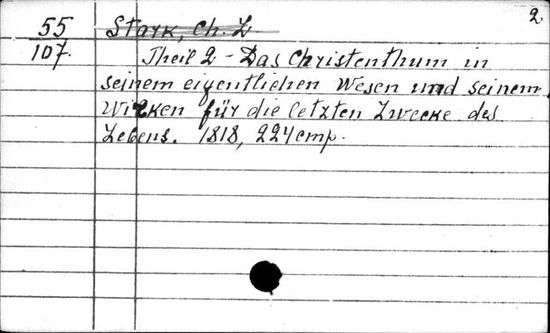 2
55
107.
Stark, Ch. L
Theil 2 - Das Christenthum in
seinem eigentlichen Wesen und seinem
Wirken für die letzten Zwecke des
Lebens. 1818, 224 стр.